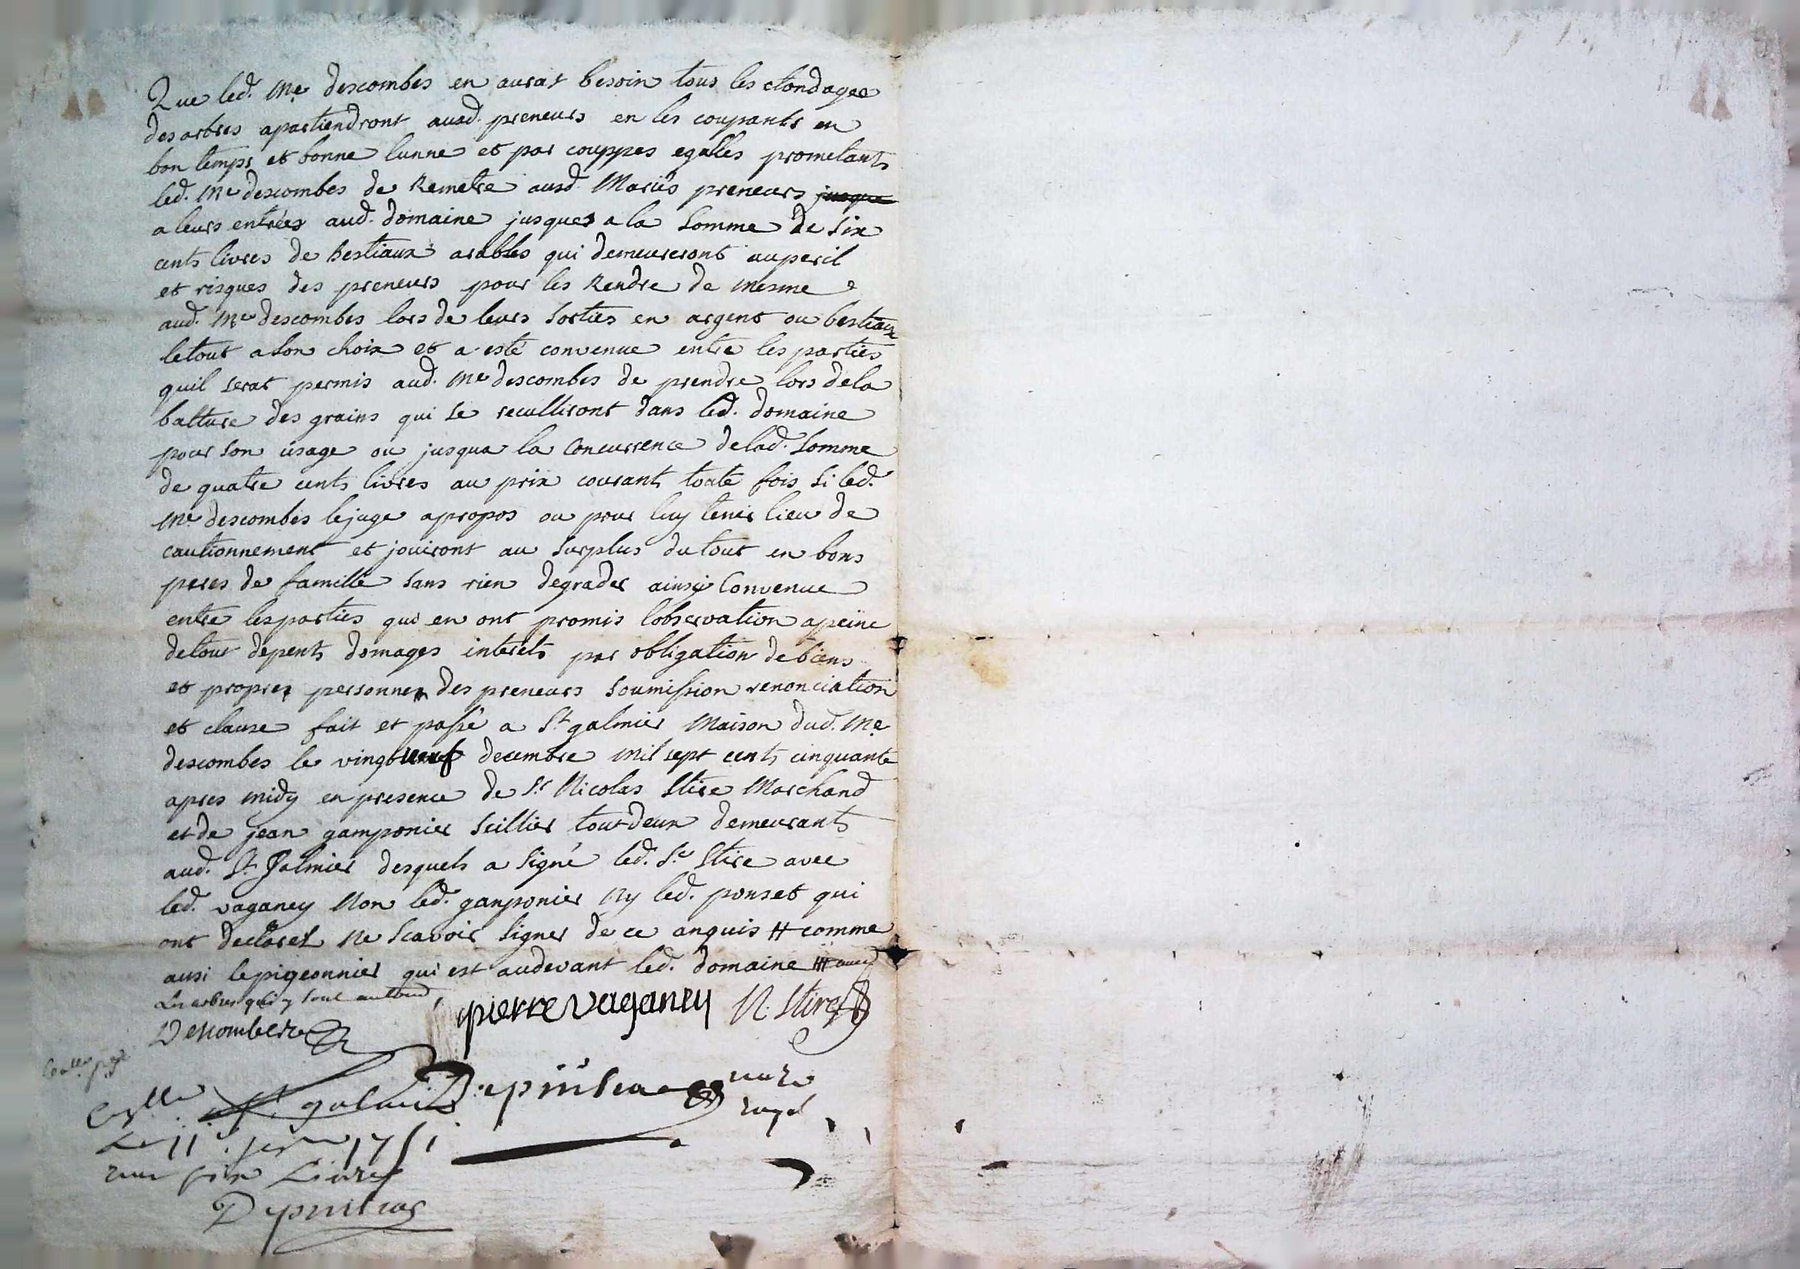 Que led. Me descombes en aurat besoin tous les etondages
des arbres apartiendront ausd. preneurs en les coupants en
bon temps et bonne lunne et par couppes egalles prometants
led. Me descombes de Remetre ausd. Mariés preneurs jusque
a leurs entrées aud. domaine jusques a la somme de six
cents livres de Bestiaux arables qui demeureront au peril
et risques des preneurs pour les Rendre de mesme
aud. Me descombes lors de leurs sorties en argent ou bestiaux
le tout a son choix et a esté convenue entre les parties
quil serat permis aud. Me descombes de prendre lors de la
batture des grains qui se recülliront dans led. domaine
pour son usage ou jusqua la Concurrence de lad. somme
de quatre cents livres au prix courant toute fois si led.
Me descombes le juge apropos ou pour luy tenir lieu de
cautionnement et jouiront au surplus du tout en bons
peres de famille sans rien degrader ainsi Convenue
entre les parties qui en ont promis lobservation a peine
de tout depents domages interets par obligation de biens
et propres personnes des preneurs soumission renonciation
et clause fait et passé a St galmier Maison dud. Me
descombes le vingt neuf decembre mil sept cents cinquante
apres midy en presence de Sr Nicolas Stire Marchand
et de jean gamponier Seillier tout deux demeurants
aud. St Galmier desquels a signé led. Sr Stire avec
led. vaganey Non led. gamponier Ny led. ponset qui
ont declaret Ne scavoir signer de ce anquis # comme
ausi le pigeonnier qui est audevant led. domaine # avec
Les arbres qui y sont autour
Descombes
pierre vaganey N. Stire
Depuisieu notre
royal
St galmier
Le 11e janv 1751
six Livres